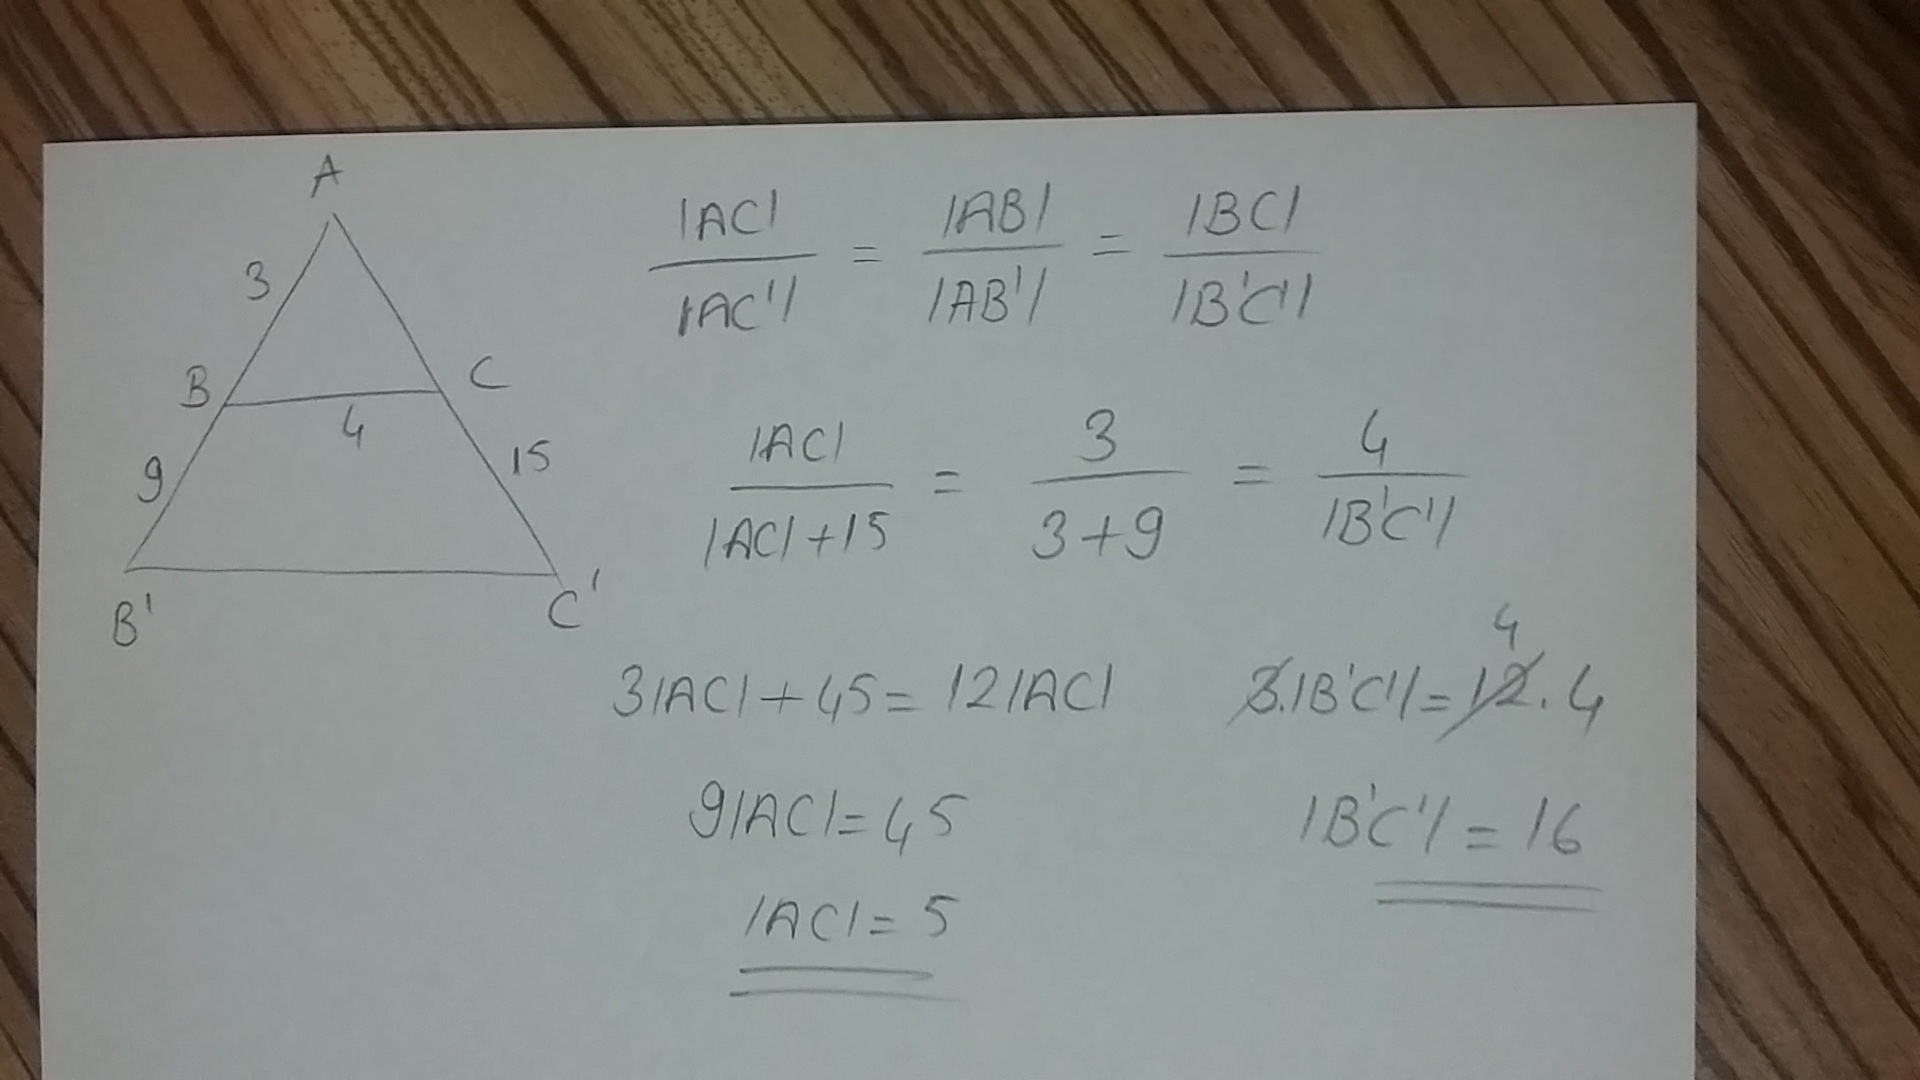 A
3
B
C
4
9
15
B'
C'
|AC|/|AC'| = |AB|/|AB'| = |BC|/|B'C'|
|AC|/|AC|+15 = 3/3+9 = 4/|B'C'|
3|AC|+45=12|AC|
4
3.|B'C'|=12.4
9|AC|=45
|B'C'|=16
|AC|=5